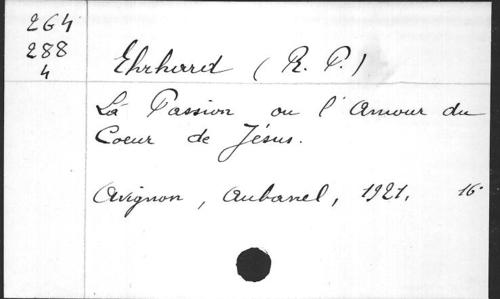 264
288
4
Ehrhard (R. P.)
La Passion ou l'Amour du
Coeur de Jésus.
Avignon, Aubanel, 1921. 16°